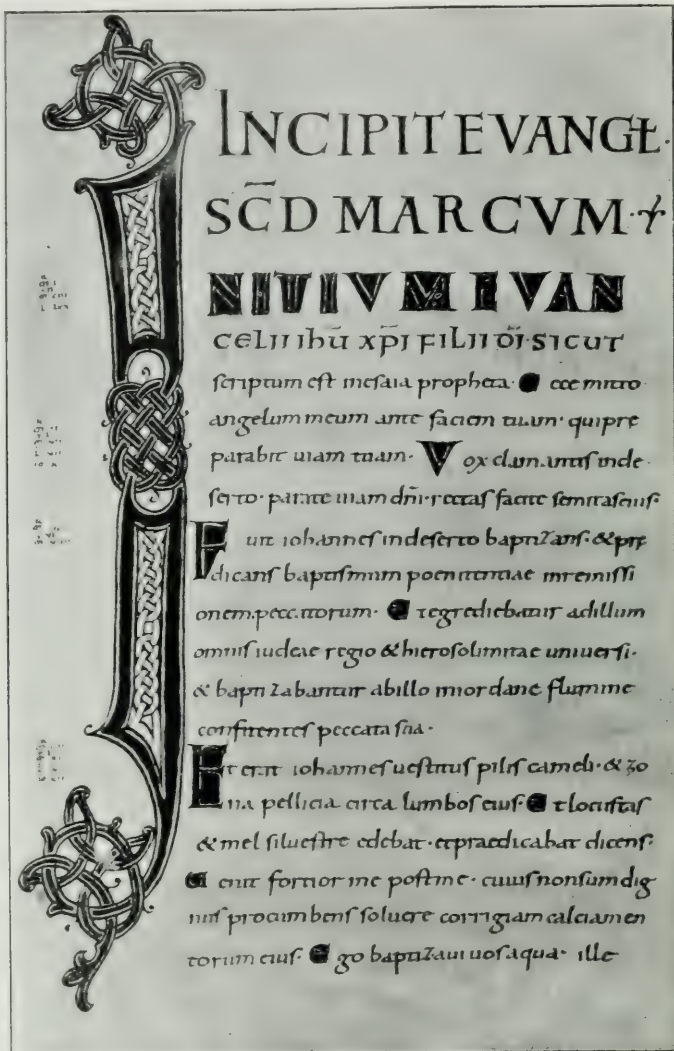 INCIPIT EVANGŁ·
SC̄D MARCVM·
INITIVM EVAN
GELII ihū xp̄i FILII dī·SICUT
scriptum est inesaia propheta· ecce mitto
angelum meum ante faciem tuam· quipre
parabit uiam tuam· Vox clamantis inde
serto· parate uiam dn̄i· rectas facite semitas eius·
Fuit iohannes indeserto baptizans· &prę
dicans baptismum poenitentiae inremissi
onem peccatorum· Et egrediebatur adillum
omnis iudeae regio & hierosolimitae uniuersi·
& baptizabantur abillo iniordane flumine
confitentes peccata sua·
Et erat iohannes uestitus pilis cameli· & zo
na pellicia circa lumbos eius· Et locustas
& mel siluestre edebat· etpraedicabat dicens·
uenit fortior me postme· cuius nonsum dig
nus procumbens soluere corrigiam calciamen
torum eius· Ego baptizaui uos aqua· ille